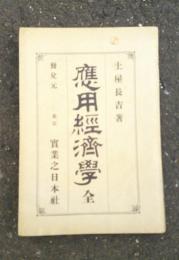 土屋長吉著
應用經濟學 全
發兌元 東京 實業之日本社